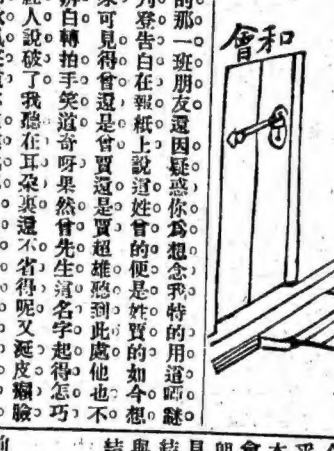 和會
的那一班朋友還因疑惑你爲想念我特的用這啞謎
登告白在報紙上說這姓曾的便是姓賈的如今想
可見得曾還是曾賈還是賈超雄聽到此處他也不
白轉拍手笑道奇呀果然曾先生這名字起得怎巧
人說破了我聽在耳朵裏還不省得呢又涎皮癩臉